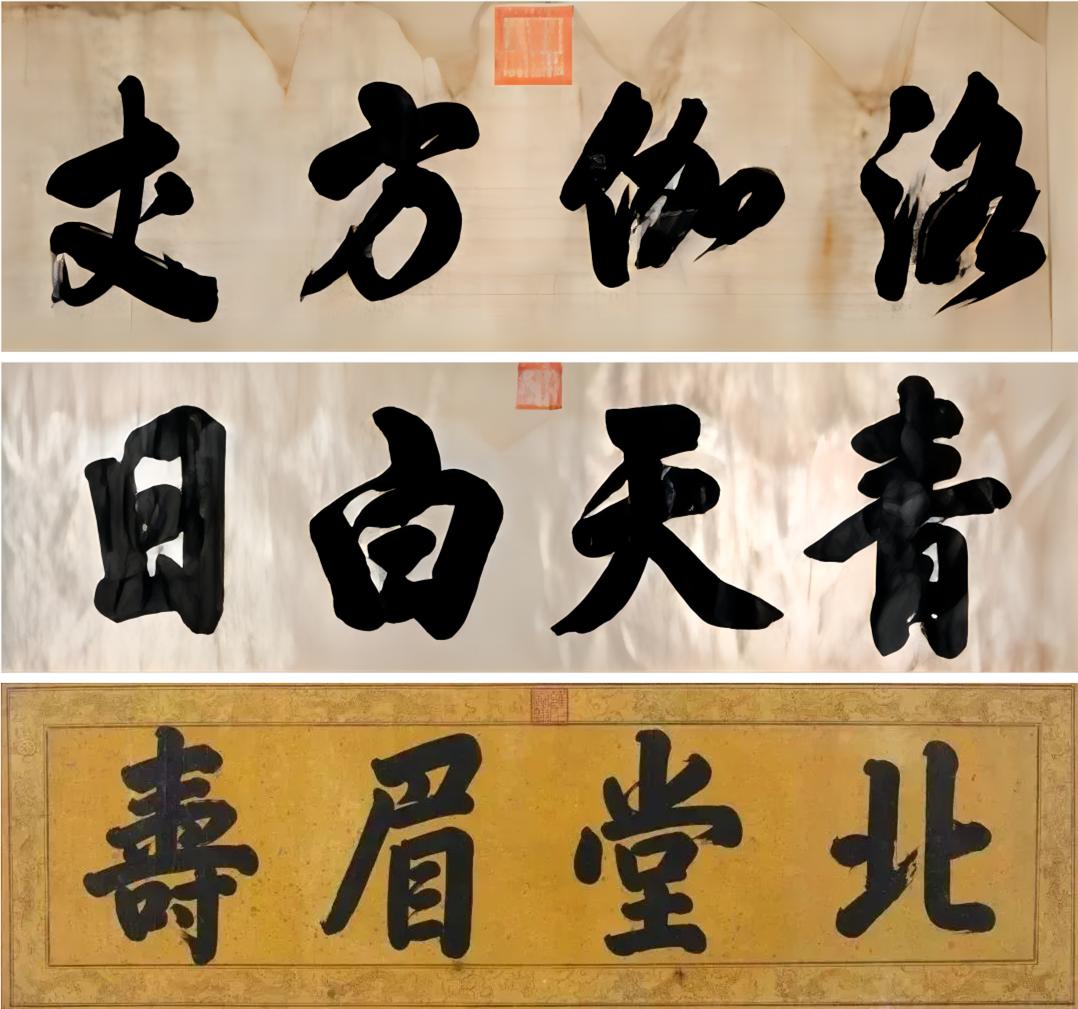 洛伽方丈
青天白日
北堂眉壽